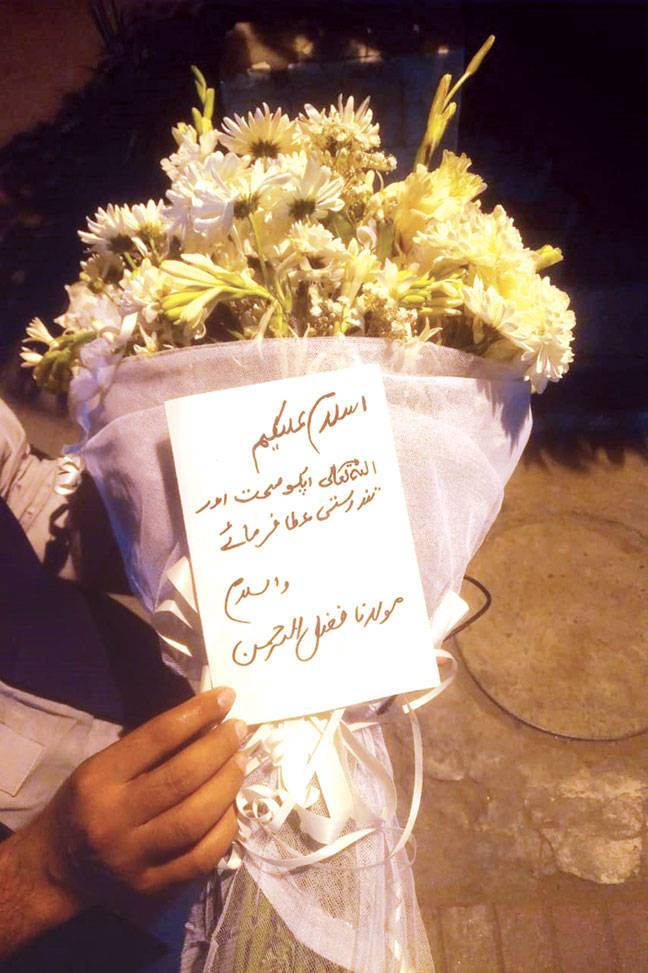 اسلام علیکم
اللہ تعالٰی آپکو صحت اور
تندرستی عطا فرمائے
والسلام
مولانا فضل الرحمن